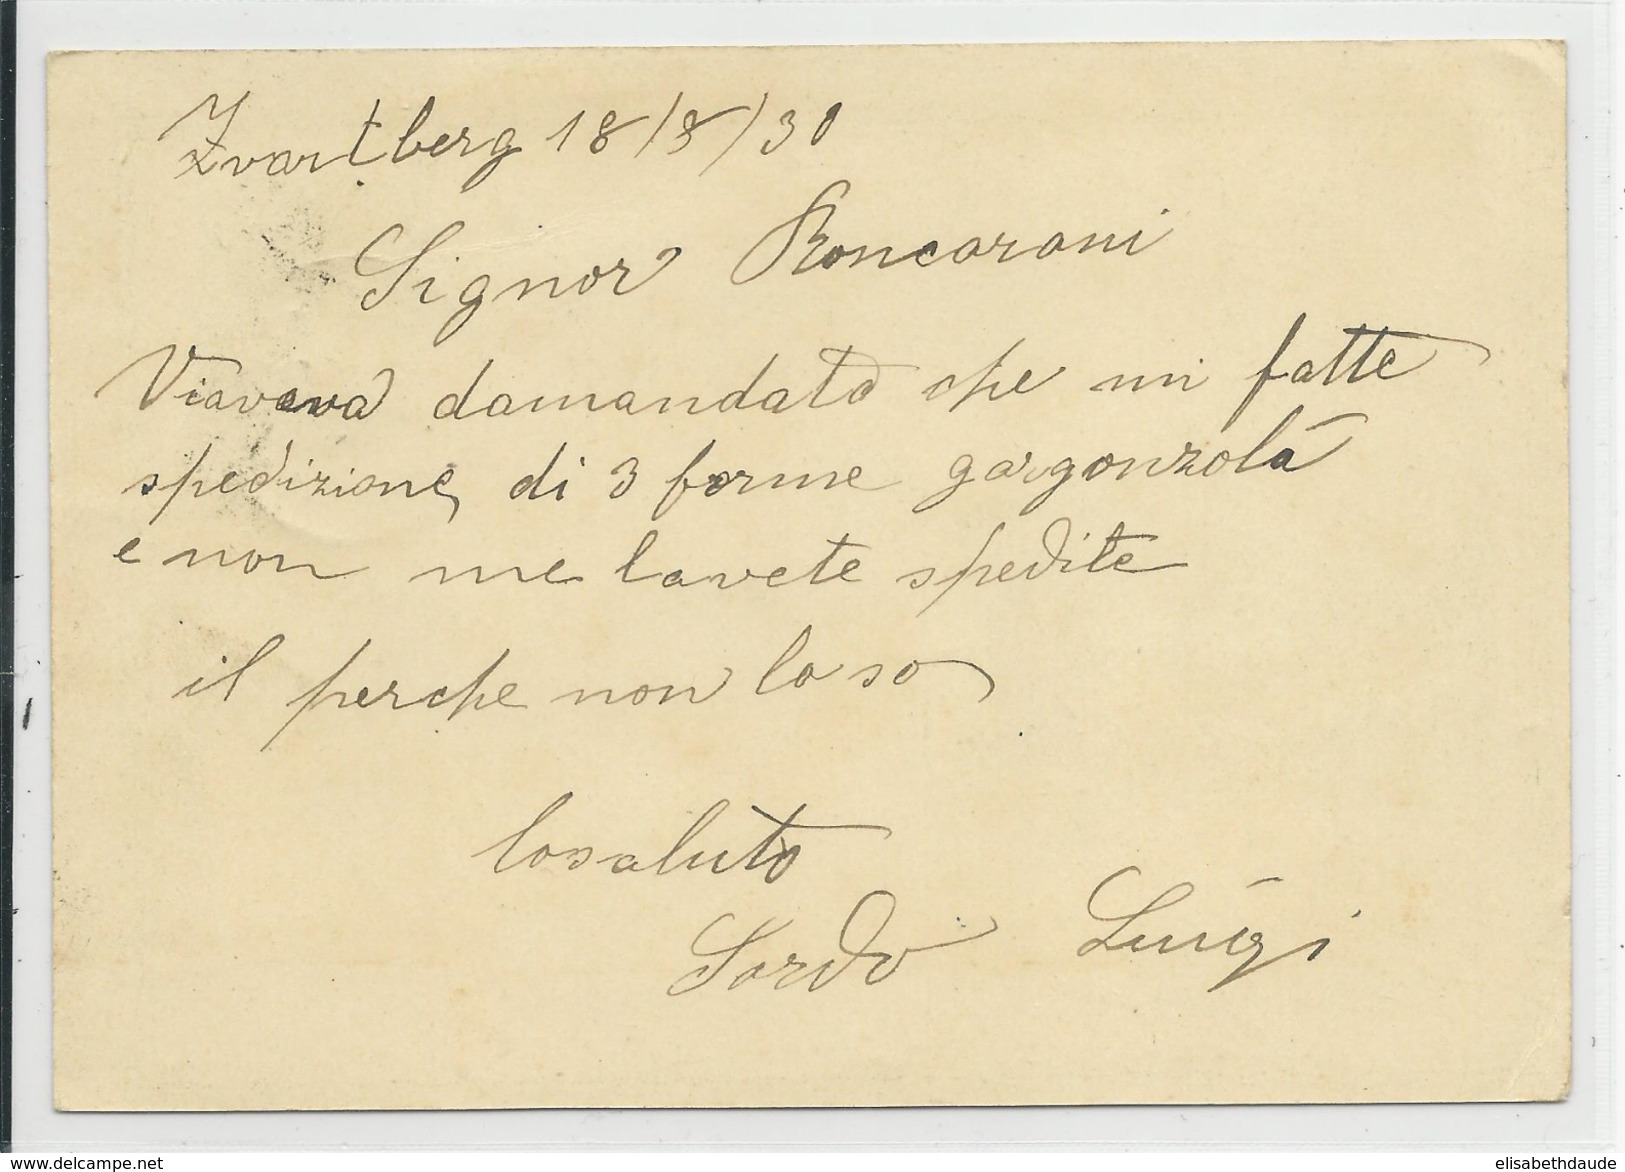 Zvartberg 18/8/30
Signor Roncarani
Viaveva damandato che mi fatte
spedizione di 3 forme gargonzola
e non me lavete spedite
il perche non lo so
losaluto
Sordo Luigi
www.delcampe.net
elisabethdaude